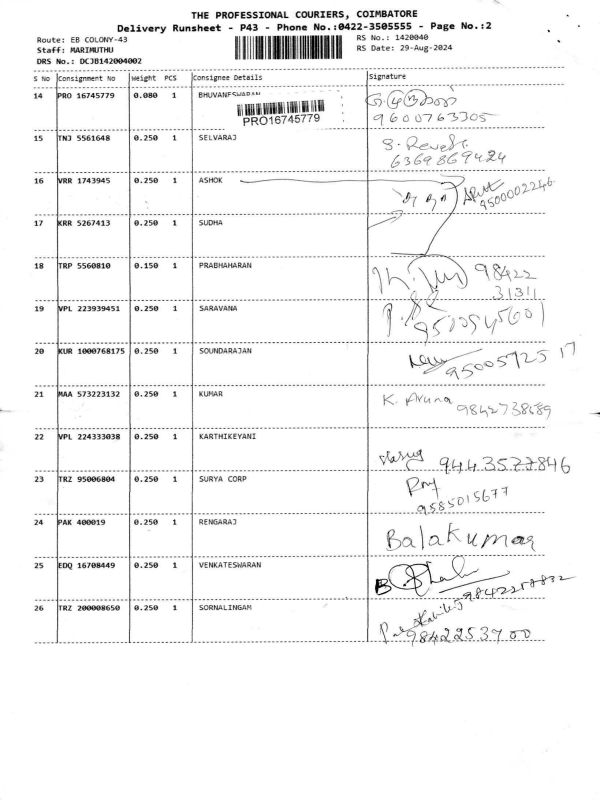 THE PROFESSIONAL COURIERS, COIMBATORE
Delivery Runsheet - P43 - Phone No.:0422-3505555 - Page No.:2
Route: EB COLONY-43
RS No.: 1420040
Staff: MARIMUTHU
RS Date: 29-Aug-2024
DRS No.: DCJB142004002
S No Consignment No Weight PCS Consignee Details Signature
14 PRO 16745779 0.080 1 BHUVANESWARAN
PRO16745779
9600763305
15 TNJ 5561648 0.250 1 SELVARAJ
6369869424
16 VRR 1743945 0.250 1 ASHOK
9500002246
17 KRR 5267413 0.250 1 SUDHA
18 TRP 5560810 0.150 1 PRABHAHARAN
98422
31311
19 VPL 223939451 0.250 1 SARAVANA
9500545601
20 KUR 1000768175 0.250 1 SOUNDARAJAN
9500572517
21 MAA 573223132 0.250 1 KUMAR K. Aruna
9842738689
22 VPL 224333038 0.250 1 KARTHIKEYANI
9443577846
23 TRZ 95006804 0.250 1 SURYA CORP
9585015677
24 PAK 400019 0.250 1 RENGARAJ Balakumar
25 EDQ 16708449 0.250 1 VENKATESWARAN
26 TRZ 200008650 0.250 1 SORNALINGAM
9842253700